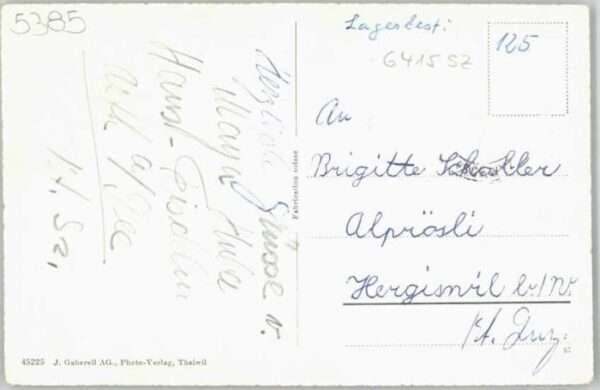 5385
Lagerbest:
6415 SZ
125
Herzliche Grüsse v.
Hanst-
Arth a/See
Kt. Sz,
Fabrication suisse
An
Brigitte
Alprösli
Hergiswil b./W.
Kt. Luz.
45225 J. Gaberell AG., Photo-Verlag, Thalwil